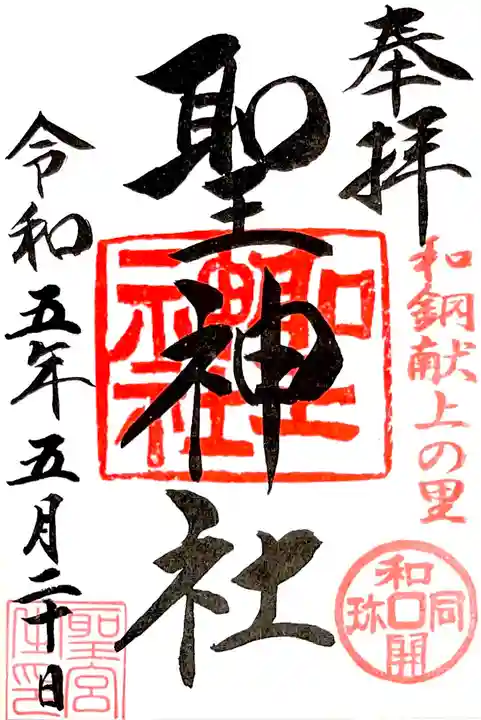 奉拝
和銅献上の里
和同開珎
聖神社
聖神社
令和五年五月二十日
聖宮